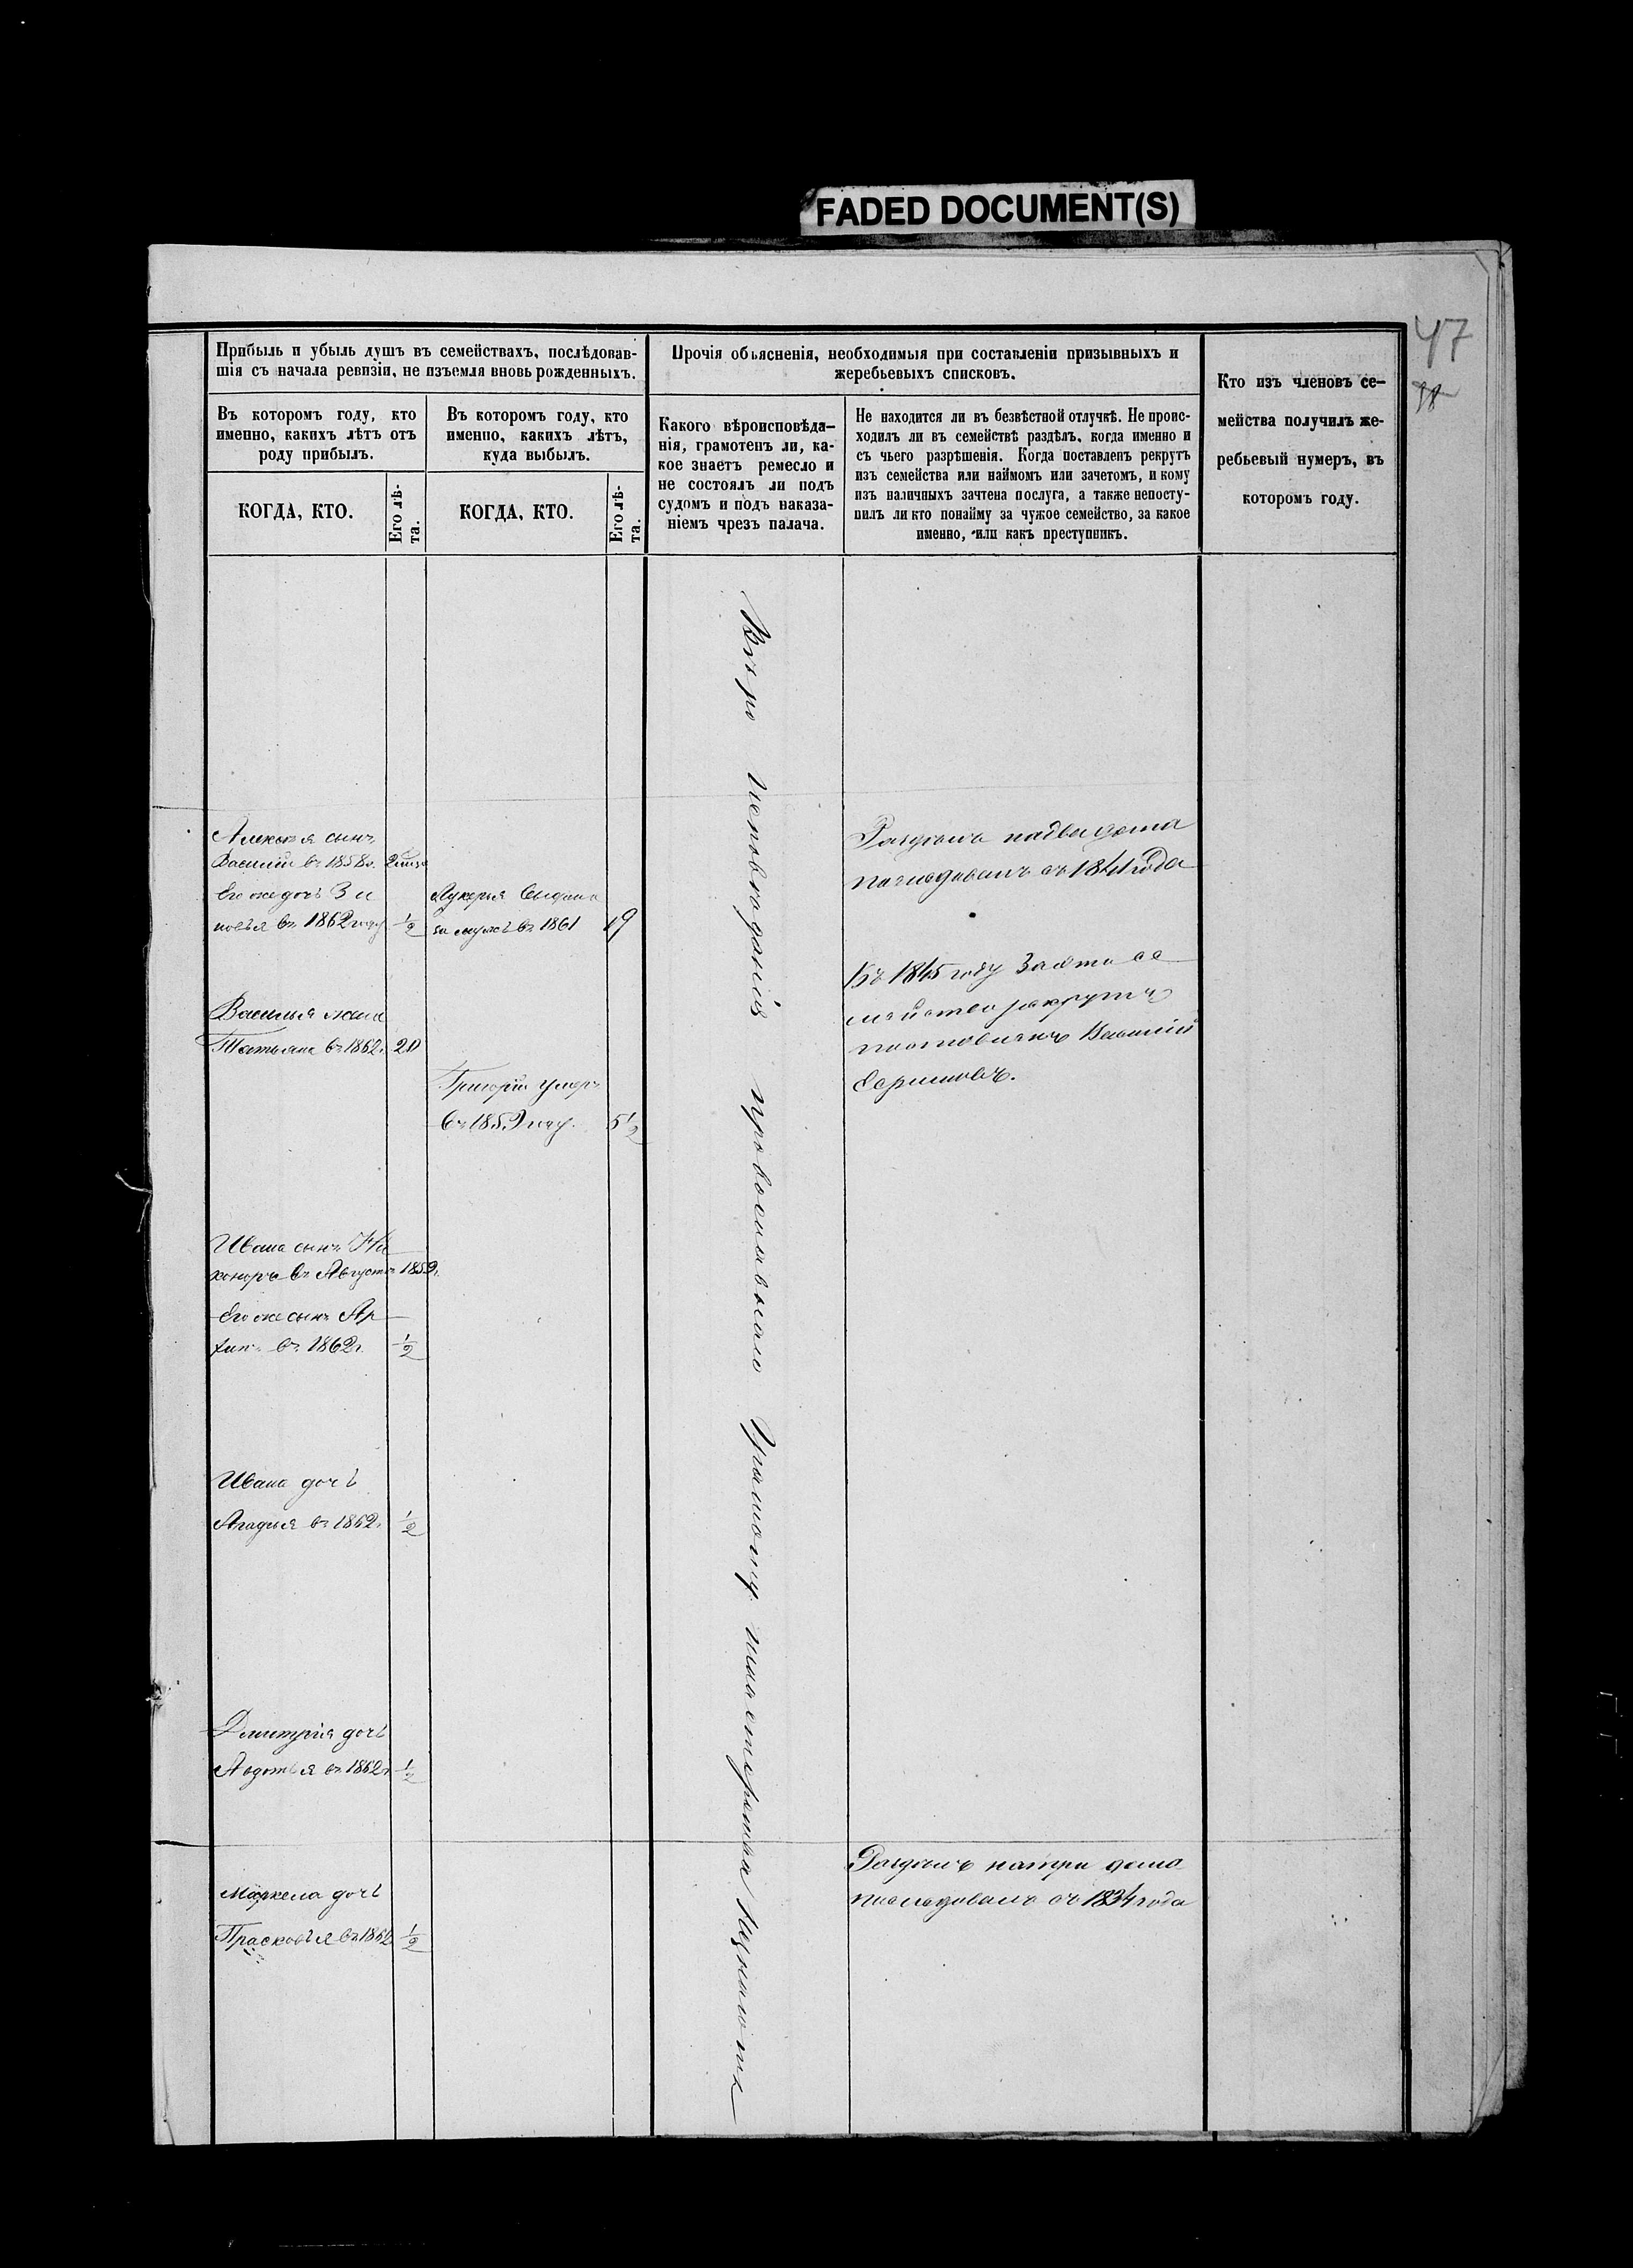 FADED DOCUMENT(S)
47
38
Прибыль и убыль душъ въ семействахъ, послѣдовав-
шія съ начала ревизіи, не изъемля вновь рожденныхъ.
Въ которомъ году, кто
именно, какихъ лѣтъ отъ
роду прибылъ.
КОГДА, КТО.
Его лѣ-
та.
Въ которомъ году, кто
именно, какихъ лѣтъ,
куда выбылъ.
КОГДА, КТО.
Его лѣ-
та.
Прочія объясненія, необходимыя при составленіи призывныхъ и
жеребьевыхъ списковъ.
Какого вѣроисповѣда-
нія, грамотенъ ли, ка-
кое знаетъ ремесло и
не состоялъ ли подъ
судомъ и подъ наказа-
ніемъ чрезъ палача.
Не находится ли въ безвѣстной отлучкѣ. Не проис-
ходилъ ли въ семействѣ раздѣлъ, когда именно и
съ чьего разрѣшенія. Когда поставленъ рекрутъ
изъ семейства или наймомъ или зачетомъ, и кому
изъ наличныхъ зачтена послуга, а также непосту-
пилъ ли кто понайму за чужое семейство, за какое
именно, или какъ преступникъ.
Кто изъ членовъ се-
мейства получилъ же-
ребьевый нумеръ, въ
которомъ году.
Алексѣя сынъ
Василій въ 1858г.
Его же дочь Зи
новья въ 1862 году ½
Лукерья выдана
за мужъ въ 1861 19
Василья жена
Татьяна въ 1862г. 20
Григорій умеръ
въ 1859 году. 5½
Ивана сынъ Ни
коноръ въ Августѣ 1859г.
Его же сынъ Ар
хип въ 1862г. ½
Ивана дочь
Агафья въ 1862г. ½
Дмитрія дочь
Авдотья въ 1862г. ½
Маркела дочь
Прасковья въ 1862 ½
Вѣро исповѣданія православнаго Грамоту мастерства
Раздѣлъ на два дома
послѣдовалъ съ 1841 года
Въ 1845 году За это се
мѣйство рекрутъ
поставленъ Василій
Раздѣлъ на три дома
послѣдовалъ съ 1834 года